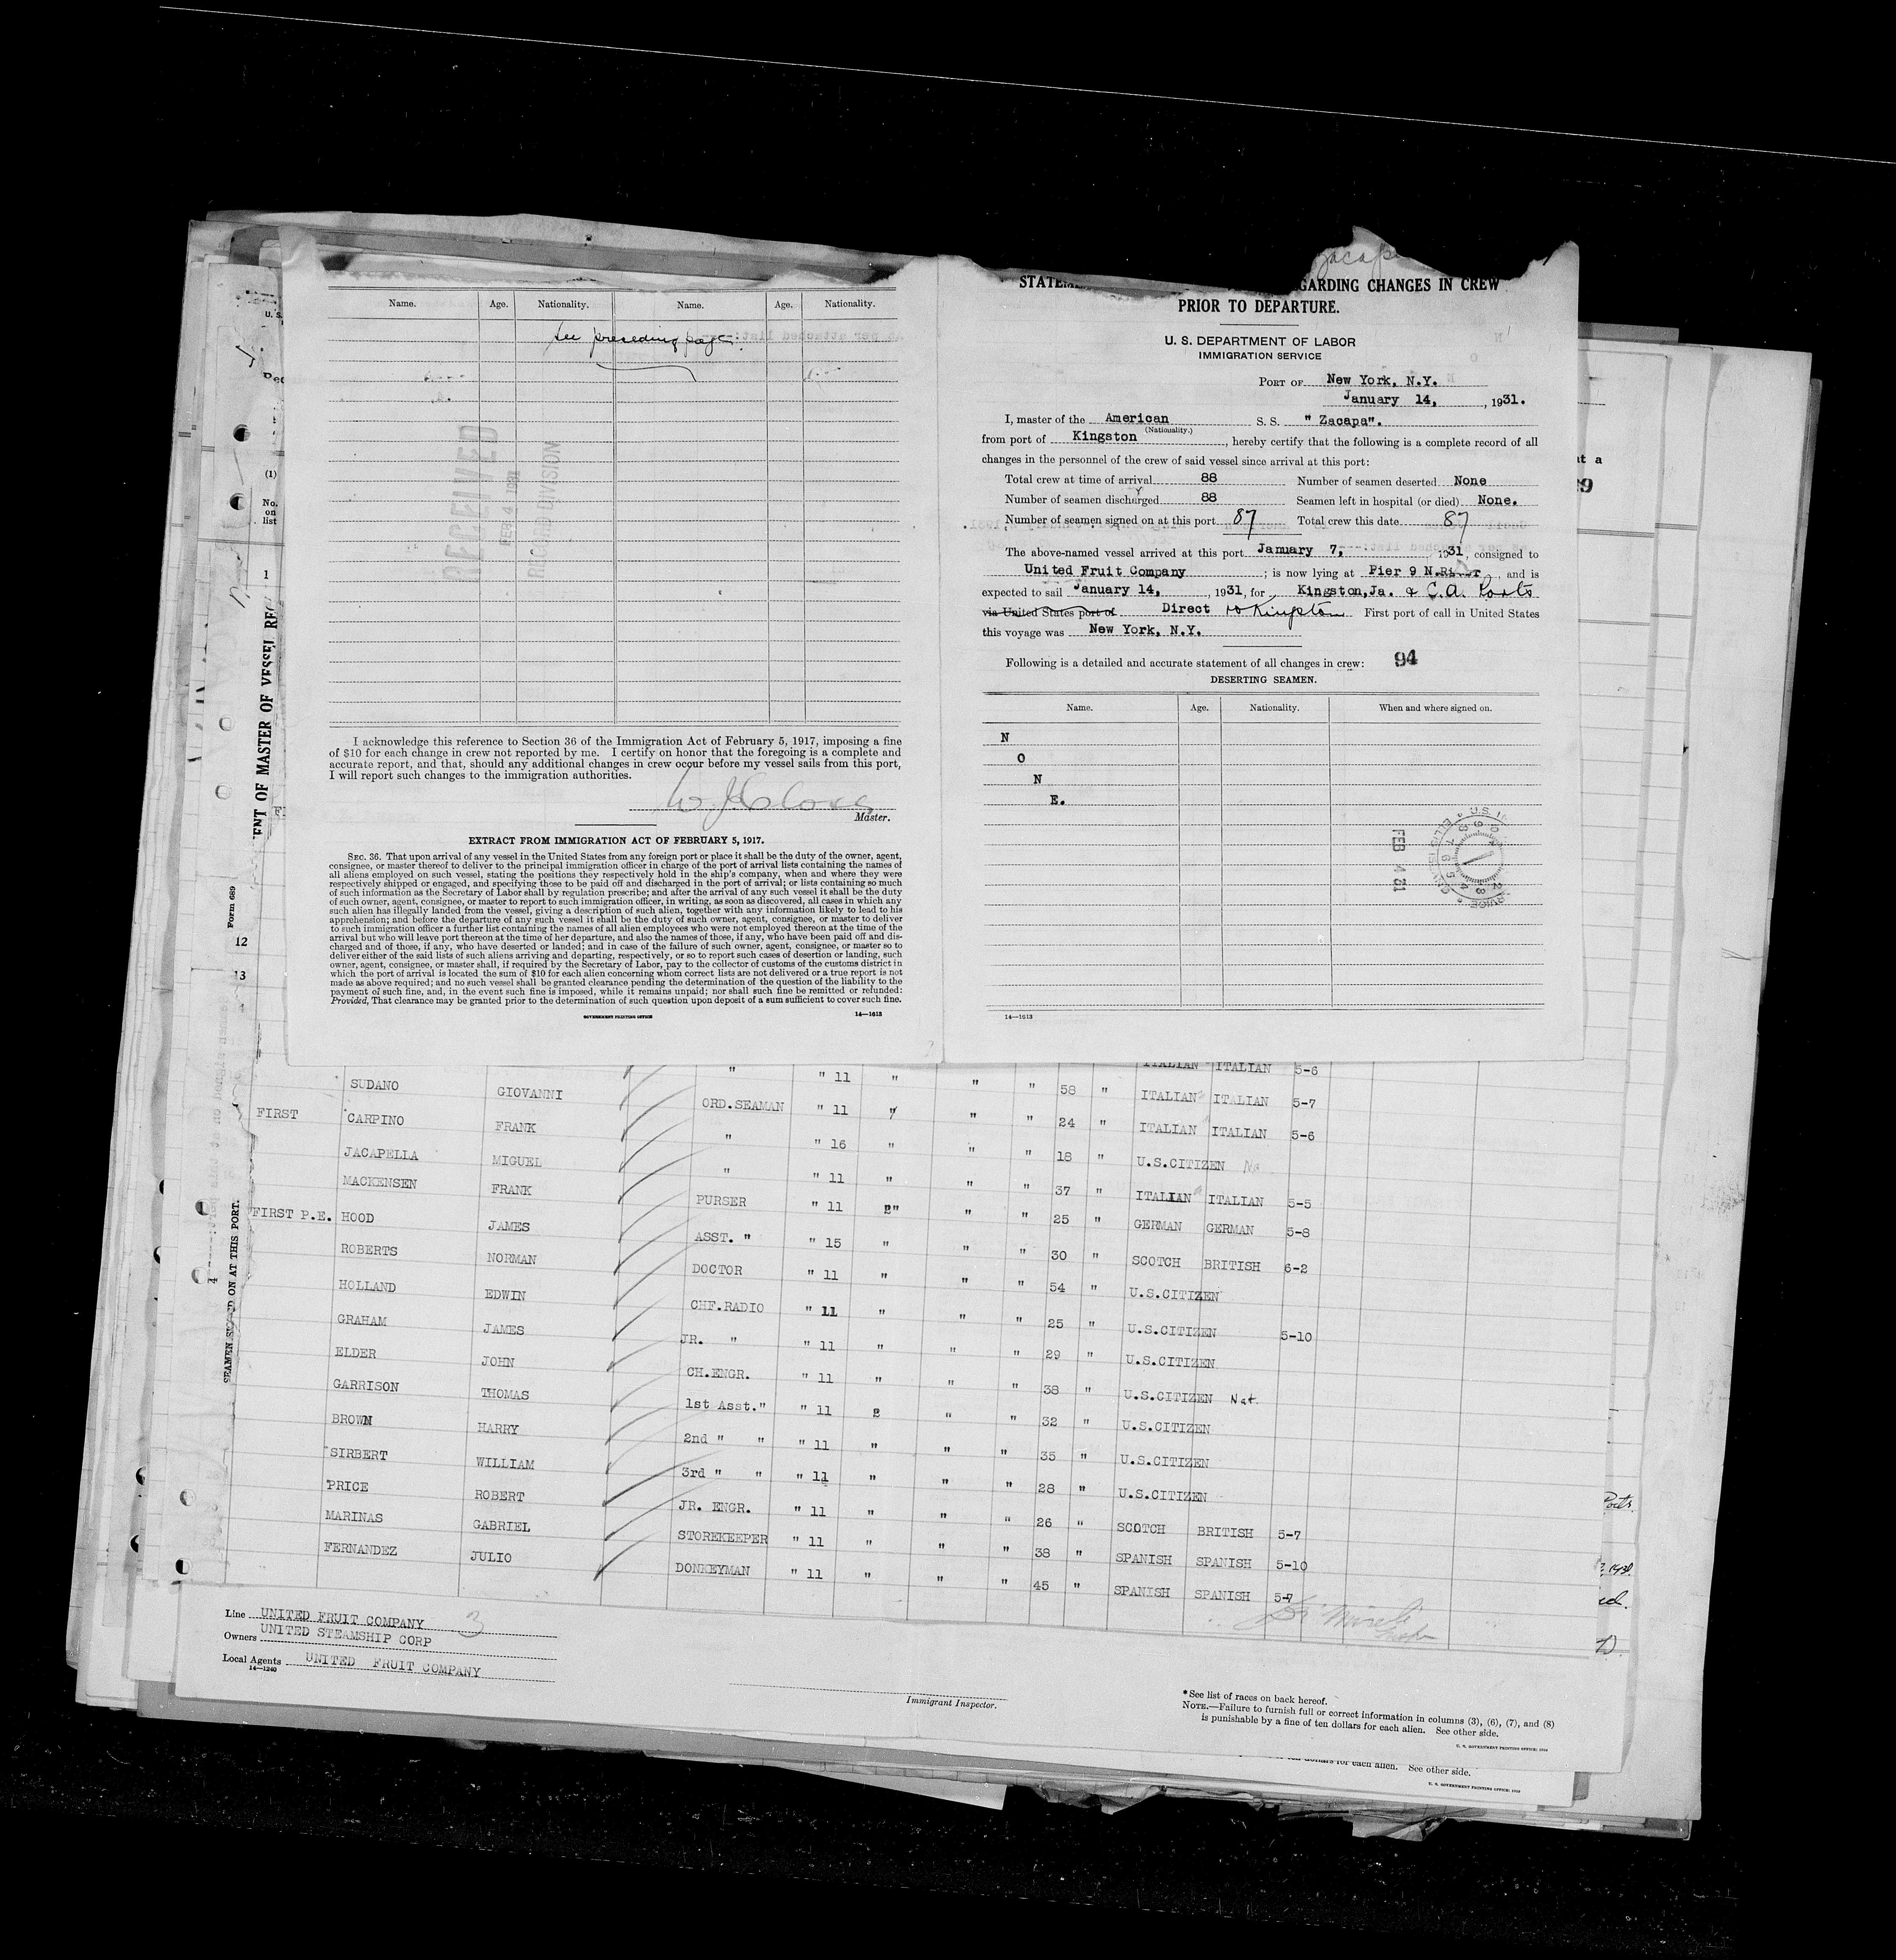 Zacapa
Name. Age. Nationality. Name. Age. Nationality.
See preceding page.
RECEIVED
FEB 4 1931
RECORD DIVISION
I acknowledge this reference to Section 36 of the Immigration Act of February 5, 1917, imposing a fine
of $10 for each change in crew not reported by me. I certify on honor that the foregoing is a complete and
accurate report, and that, should any additional changes in crew occur before my vessel sails from this port,
I will report such changes to the immigration authorities.
Master.
EXTRACT FROM IMMIGRATION ACT OF FEBRUARY 5, 1917.
SEC. 36. That upon arrival of any vessel in the United States from any foreign port or place it shall be the duty of the owner, agent,
consignee, or master thereof to deliver to the principal immigration officer in charge of the port of arrival lists containing the names of
all aliens employed on such vessel, stating the positions they respectively hold in the ship's company, when and where they were
respectively shipped or engaged, and specifying those to be paid off and discharged in the port of arrival; or lists containing so much
of such information as the Secretary of Labor shall by regulation prescribe; and after the arrival of any such vessel it shall be the duty
of such owner, agent, consignee, or master to report to such immigration officer, in writing, as soon as discovered, all cases in which any
such alien has illegally landed from the vessel, giving a description of such alien, together with any information likely to lead to his
apprehension; and before the departure of any such vessel it shall be the duty of such owner, agent, consignee, or master to deliver
to such immigration officer a further list containing the names of all alien employees who were not employed thereon at the time of the
arrival but who will leave port thereon at the time of her departure, and also the names of those, if any, who have been paid off and dis-
charged and of those, if any, who have deserted or landed; and in case of the failure of such owner, agent, consignee, or master so to
deliver either of the said lists of such aliens arriving and departing, respectively, or so to report such cases of desertion or landing, such
owner, agent, consignee, or master shall, if required by the Secretary of Labor, pay to the collector of customs of the customs district in
which the port of arrival is located the sum of $10 for each alien concerning whom correct lists are not delivered or a true report is not
made as above required; and no such vessel shall be granted clearance pending the determination of the question of the liability to the
payment of such fine, and, in the event such fine is imposed, while it remains unpaid; nor shall such fine be remitted or refunded:
Provided, That clearance may be granted prior to the determination of such question upon deposit of a sum sufficient to cover such fine.
GOVERNMENT PRINTING OFFICE 14—1613
GARDING CHANGES IN CREW
PRIOR TO DEPARTURE.
U. S. DEPARTMENT OF LABOR
IMMIGRATION SERVICE
PORT OF New York, N.Y.
January 14, , 1931.
I, master of the American S. S. " Zacapa".
(Nationality.)
from port of Kingston , hereby certify that the following is a complete record of all
changes in the personnel of the crew of said vessel since arrival at this port:
Total crew at time of arrival 88 Number of seamen deserted None
Number of seamen discharged 88 Seamen left in hospital (or died) None.
Number of seamen signed on at this port 87 Total crew this date 87
The above-named vessel arrived at this port January 7, 1931, consigned to
United Fruit Company ; is now lying at Pier 9 N.River , and is
expected to sail January 14, , 1931, for Kingston,Ja. & C.A. Ports
via United States port of Direct to Kingston First port of call in United States
this voyage was New York, N.Y.
Following is a detailed and accurate statement of all changes in crew: 94
DESERTING SEAMEN.
Name. Age. Nationality. When and where signed on.
N
O
N
E.
FEB 4 31
14—1613
ENT OF MASTER OF VESSEL
Form 689
12
13
SEAMEN SIGNED ON AT THIS PORT.
" " 11 " " " ITALIAN ITALIAN 5-6
SUDANO GIOVANNI ORD.SEAMAN " 11 " " " 58 " ITALIAN ITALIAN 5-7
FIRST CARPINO FRANK " " 16 " " " 24 " ITALIAN ITALIAN 5-6
JACAPELLA MIGUEL " " 11 " " " 18 " U.S.CITIZEN
MACKENSEN FRANK PURSER " 11 " " " 37 " ITALIAN ITALIAN 5-5
FIRST P.E. HOOD JAMES ASST. " " 15 " " " 25 " GERMAN GERMAN 5-8
ROBERTS NORMAN DOCTOR " 11 " " " 30 " SCOTCH BRITISH 6-2
HOLLAND EDWIN CHF.RADIO " 11 " " " 54 " U.S.CITIZEN
GRAHAM JAMES JR. " " 11 " " " 25 " U.S.CITIZEN 5-10
ELDER JOHN CH.ENGR. " 11 " " " 29 " U.S.CITIZEN
GARRISON THOMAS 1st Asst." " 11 2 " " 38 " U.S.CITIZEN Nat.
BROWN HARRY 2nd " " " 11 " " " 32 " U.S.CITIZEN
SIRBERT WILLIAM 3rd " " " 11 " " " 35 " U.S.CITIZEN
PRICE ROBERT JR. ENGR. " 11 " " " 28 " U.S.CITIZEN
MARINAS GABRIEL STOREKEEPER " 11 " " " 26 " SCOTCH BRITISH 5-7
FERNANDEZ JULIO DONKEYMAN " 11 " " " 38 " SPANISH SPANISH 5-10
45 " SPANISH SPANISH 5-7
Line UNITED FRUIT COMPANY 3
Owners UNITED STEAMSHIP CORP
Local Agents UNITED FRUIT COMPANY
14—1240
Immigrant Inspector.
* See list of races on back hereof.
NOTE.—Failure to furnish full or correct information in columns (3), (6), (7), and (8)
is punishable by a fine of ten dollars for each alien. See other side.
U. S. GOVERNMENT PRINTING OFFICE
dollars for each alien. See other side.
U. S. GOVERNMENT PRINTING OFFICE